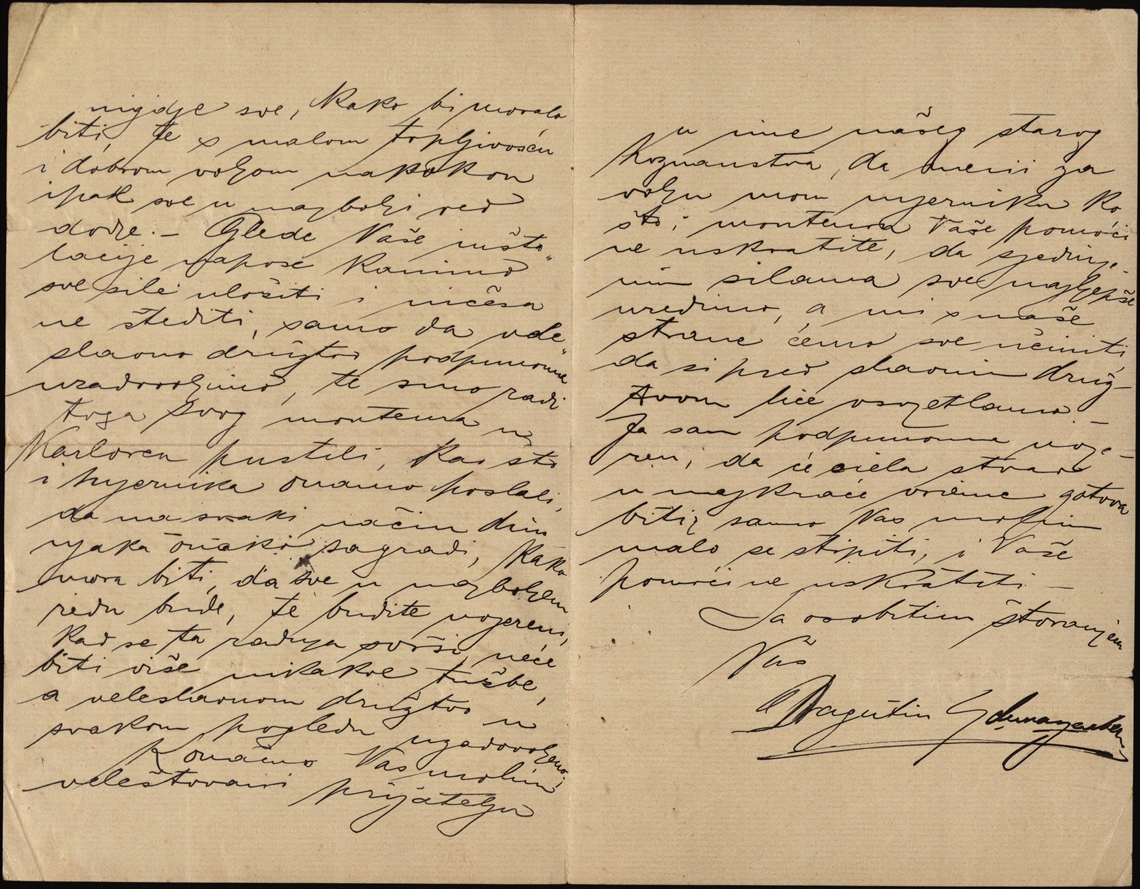 nigdje sve, kako bi morala
biti, te s malom
i dobrom voljom nakokon
ipak sve u najbolji red
dodje. – Glede Vaše inšto-
lacije napose kanimo
sve sile uložiti i ničesa
ne štediti, samo da vele
slavno družtvo podpunoma
uzadovoljimo, te smo radi
toga svog montera u
Karlovcu pustili, kao što
i mjernika onamo poslali,
da na svaki način dim
njaka onako sagradi, kako
mora biti, da sve u najboljem
redu bude, te budite uvjereni,
kad se ta radnja svrši, neće
biti više nikakve tužbe,
a veleslavnom družtvo u
svakom pogledu uzadovoljeno.
Konačno Vas molim,
veleštovani prijatelju
u ime našeg starog
Poznanstva, da meni za
volju mom mjerniku ko
što i montera Vaše pomoći
ne uskratite, da sjedinje-
nim silama sve najljepše
uredimo, a mi s naše
strane ćemo sve učiniti,
da si pred slavnim druž-
tvom lice osvjetlamo
Ja sam podpunoma uvje-
ren, da će ciela stvar
u najkraće vrieme gotova
biti, samo Vas molim
malo se strpiti, i Vaše
pomoći ne uskratiti –
Sa osobitim štovanjem
Vaš
Dragutin